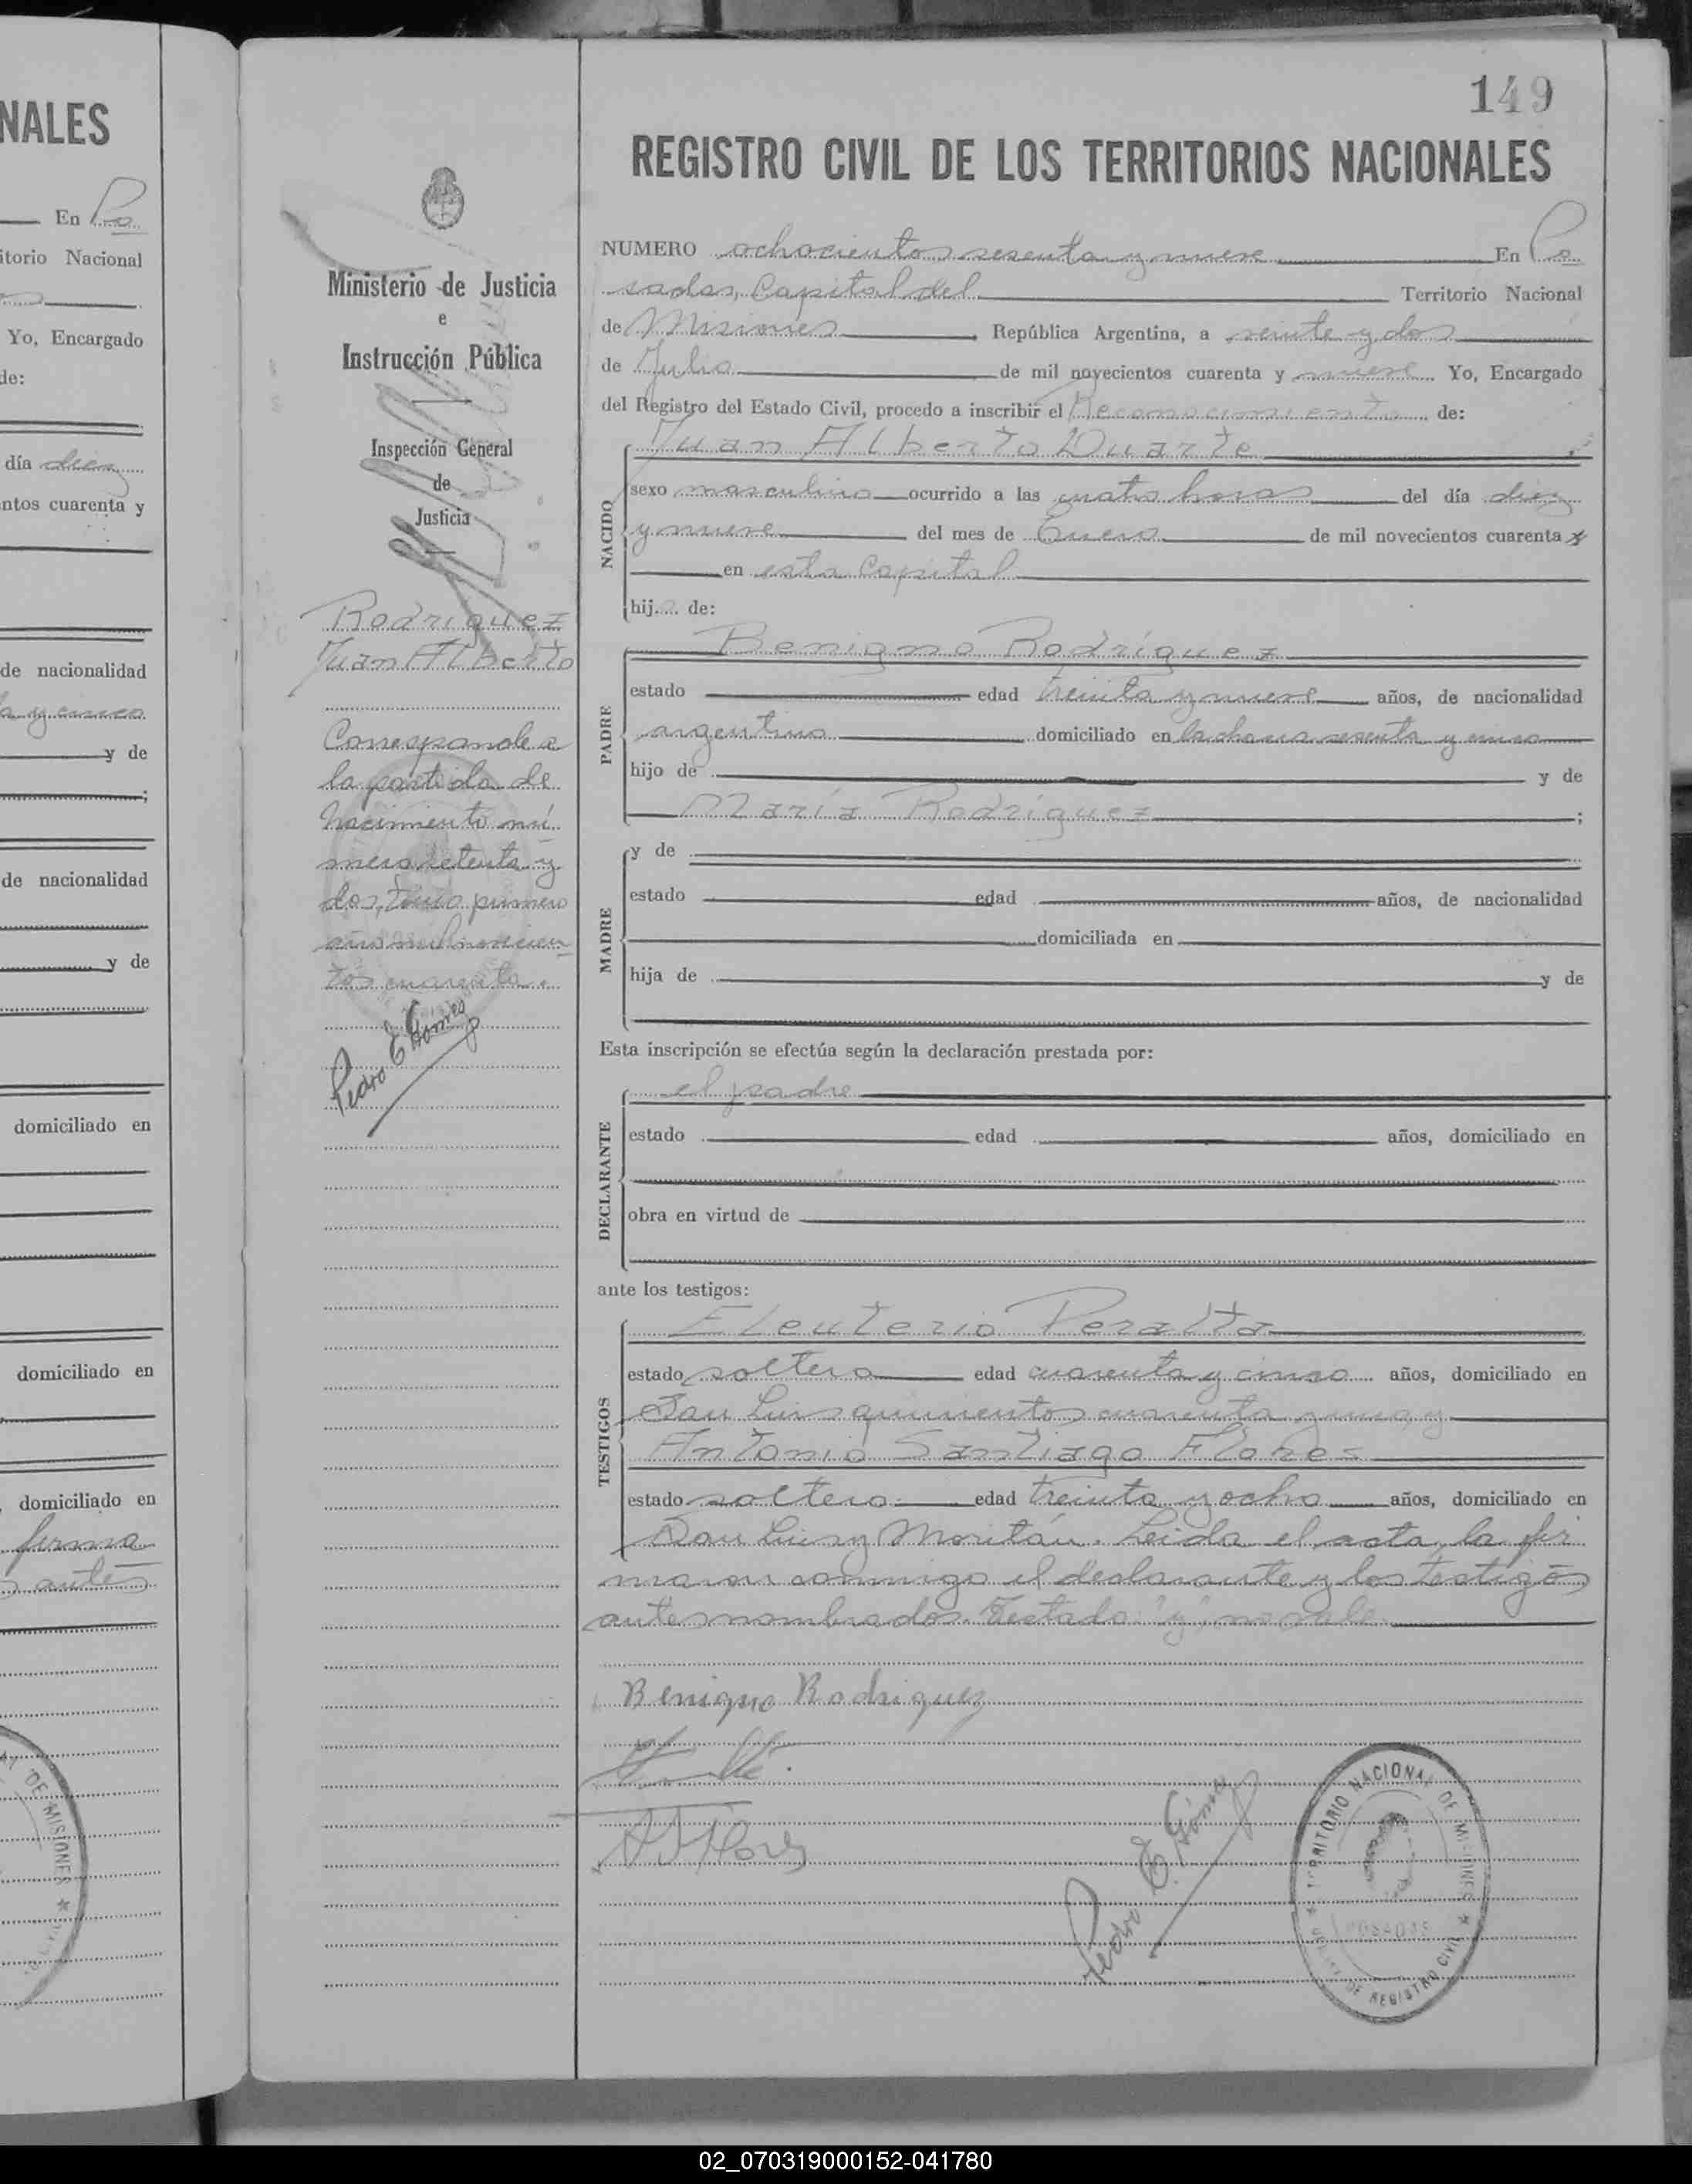 NALES
En Po
itorio Nacional
Yo, Encargado
de:
día diez
ntos cuarenta y
de nacionalidad
a y cinco
y de
;
de nacionalidad
y de
domiciliado en
domiciliado en
domiciliado en
firma
antes
DE MISIONES
149
REGISTRO CIVIL DE LOS TERRITORIOS NACIONALES
Ministerio de Justicia
e
Instrucción Pública
Inspección General
de
Justicia
Rodríguez
Juan Alberto
Corresponde a
la partida de
Nacimiento nú
mero setenta y
dos, tomo primero
año mil novecien
tos cuarenta.
Pedro E Gómez
NUMERO ochocientos sesenta y nueve En Po
sadas, Capital del Territorio Nacional
de Misiones República Argentina, a veinte y dos
de Julio de mil novecientos cuarenta y nueve Yo, Encargado
del Registro del Estado Civil, procedo a inscribir el Reconocimiento de:
NACIDO
Juan Alberto Duarte
sexo masculino ocurrido a las cuatro horas del día diez
y nueve del mes de Enero de mil novecientos cuarenta y
en esta Capital
hij de:
PADRE
Benigno Rodríguez
estado edad treinta y nueve años, de nacionalidad
argentino domiciliado en la chacra sesenta y cinco
hijo de y de
María Rodríguez ;
MADRE
y de
estado edad años, de nacionalidad
domiciliada en
hija de y de
Esta inscripción se efectúa según la declaración prestada por:
DECLARANTE
el padre
estado edad años, domiciliado en
obra en virtud de
ante los testigos:
TESTIGOS
Eleuterio Peralta
estado soltero edad cuarenta y cinco años, domiciliado en
San Luis quinientos cuarenta y uno, y
Antonio Santiago Flores
estado soltero edad treinta y ocho años, domiciliado en
San Luis y Moritán. Leida el acta, la fir
maron conmigo el declarante y los testigos
antes nombrados. Testado: "y" no vale.
Benigno Rodriguez
A S Flores
Pedro E. Gómez
TERRITORIO NACIONAL DE MISIONES
POSADAS
DE REGISTRO CIVIL
02_070319000152-041780